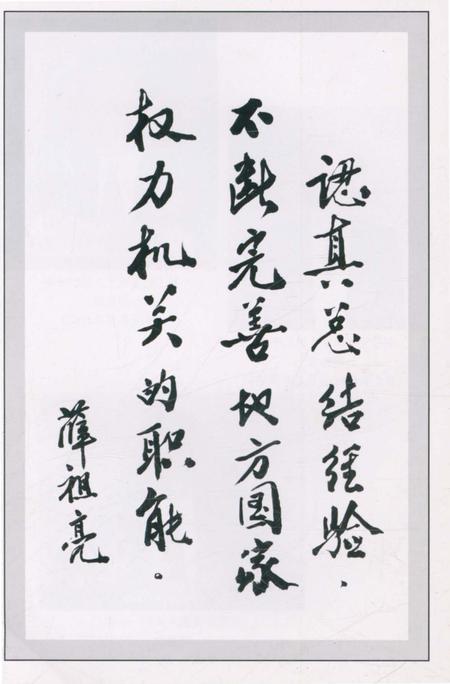 認真总结经验、
不断完善地方国家
权力机关的职能。
薛祖亮